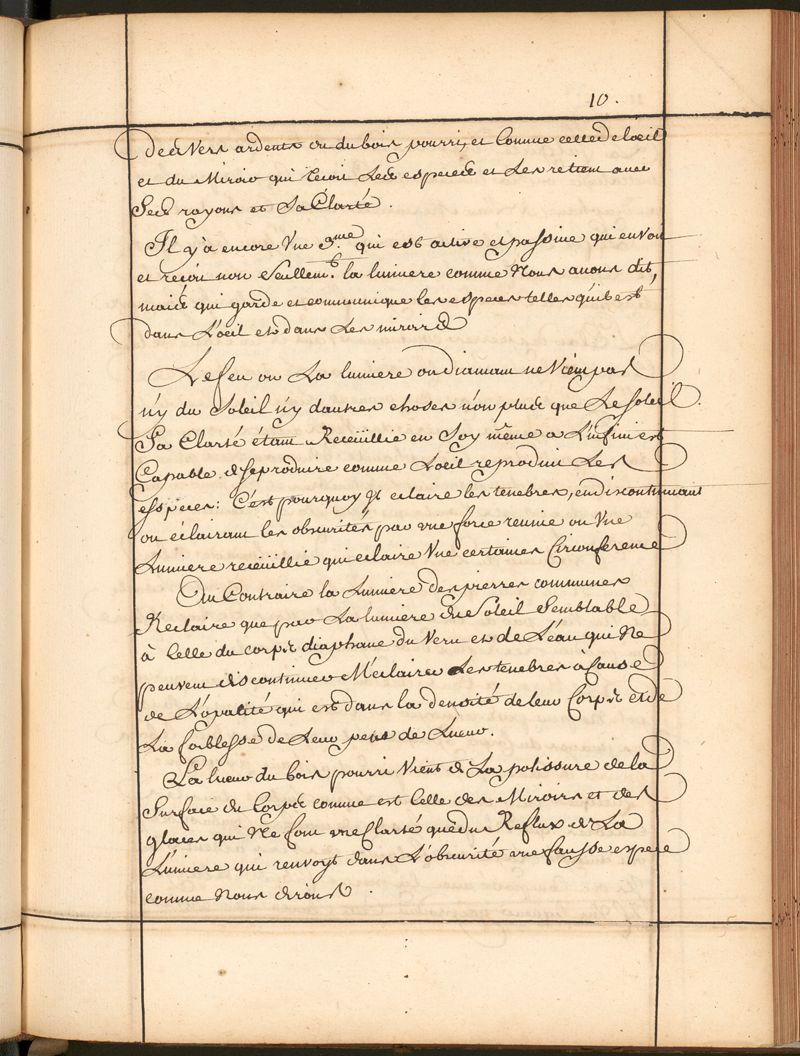 10.
des Vers ardents ou du bois pourri, et Comme celle de l'oeil
et du Miroir qui recoit Les especes et Les retient avec
Ses rayons et Sa Clarté.
Il y'a encore Vne 3.me qui est active et passive qui envoit
et reçoit non Seullem.t la lumiere comme Nous avons dit,
mais qui garde et communique les especes telles qu'ils est
dans L'oeil et dans Les miroirs
Le feu ou La lumiere ou diamant ne Vient pas
n'y du Soleil n'y d'autres choses non plus que Le Soleil.
Sa Clarté étant Receüillie en Soy même a L'infini est
Capable de se produire comme L'oeil reproduit Les
especes: C'est pourquoy Il eclaire les tenebres, en discontinuant
ou éclairant les obscurités par vne force reunie ou Vne
Lumiere receüillie qui eclaire Vne certaines Circonference
Au Contraire la Lumiere des pierres communes
N'eclaire que par La lumiere du Soleil Semblable
à Celle du corps diaphane du Verre et de L'eau qui Ne
peuvent discontinuer N'éclairer Les tenebres à Cause
de L'opalité qui est dans la densité de leur Corps et de
La foiblesse de Leur peu de Lueur.
La lueur du bois pourri Vient de La polissure de la
Surface du Corps comme est Celle des Miroirs et des
glaces qui Ne font vne Clarté que du Reflux de La
Lumiere qui renvoyt dans L'obscurité vne fausse espece
comme Nous dirons.